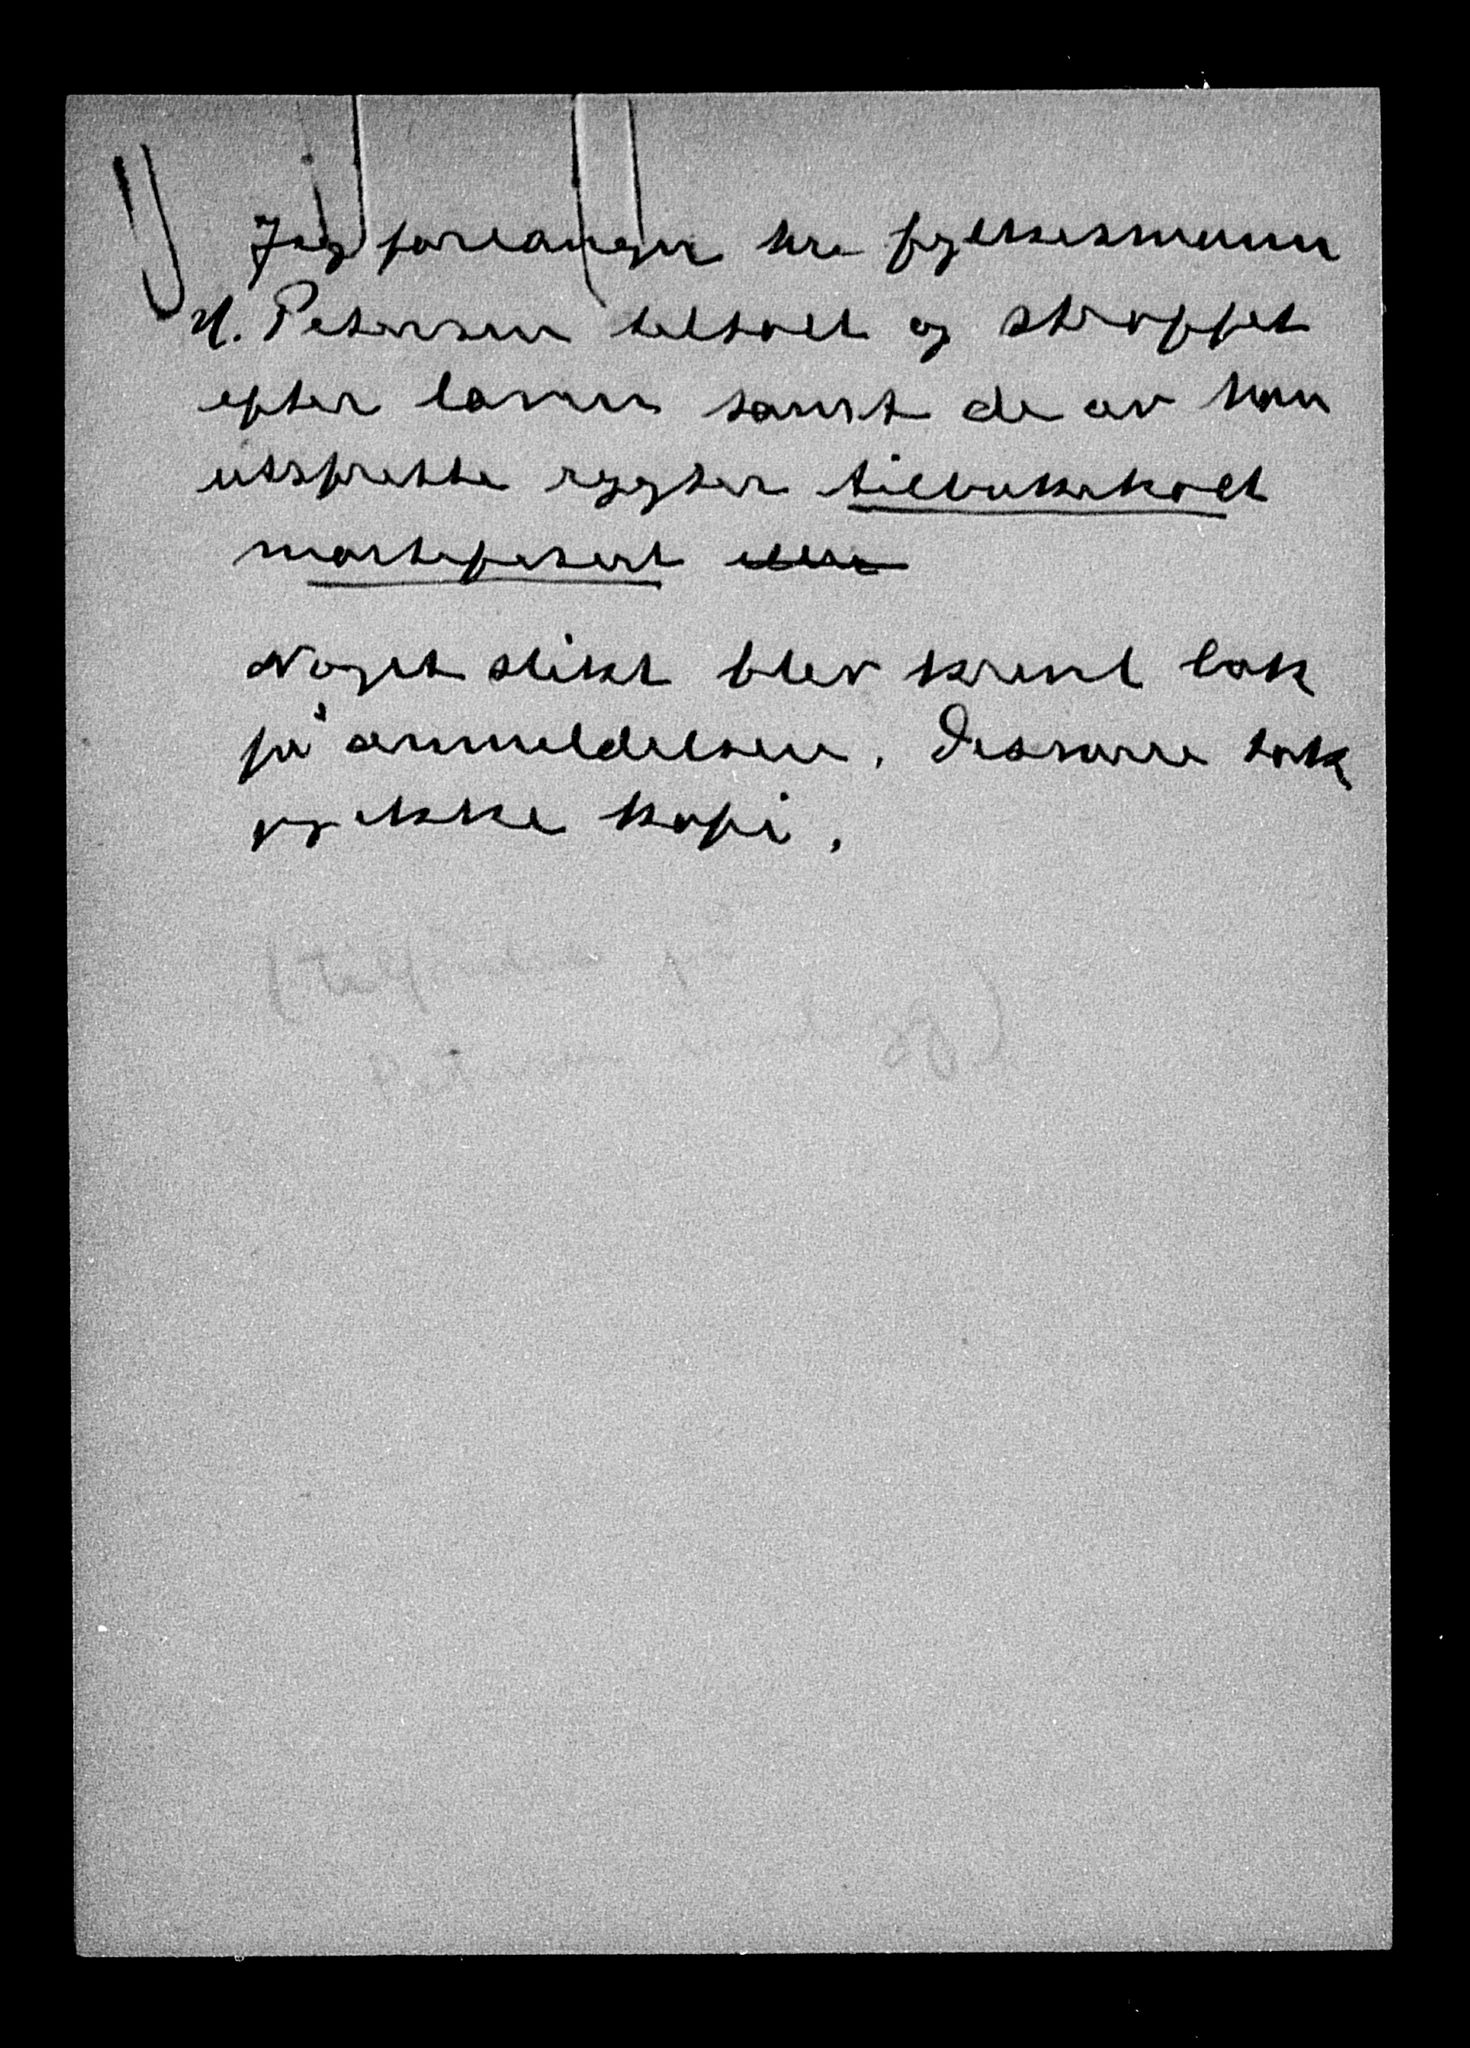 Jeg forlanger hr. fylkesmann
H. Petersen tiltalt og straffet
efter loven samt de av ham
utspredte rygter tilbakekalt
mortefisert eller
Noget slikt blev krevet bak
på anmeldelsen. Dessverre tok
jeg ikke kopi.
på
Petersen